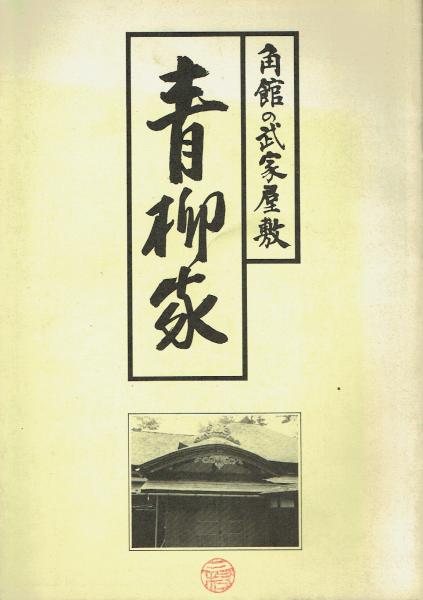 角館の武家屋敷
青柳家